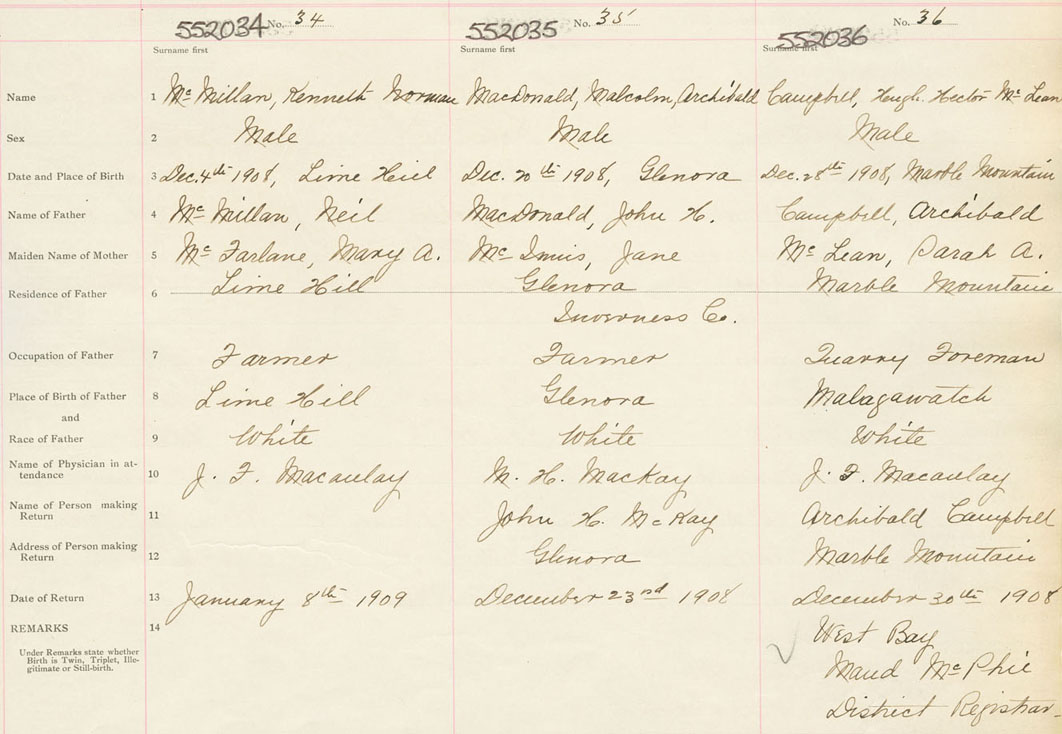 552034 No. 34 552035 No. 35 552036 No. 36
Surname first Surname first Surname first
Name 1 Mc Millan, Kenneth Norman MacDonald, Malcolm, Archibald Campbell, Hugh Hector Mc Lean
Sex 2 Male Male Male
Date and Place of Birth 3 Dec. 4th 1908, Lime Hill Dec. 20th 1908, Glenora Dec. 28th 1908, Marble Mountain
Name of Father 4 Mc Millan, Neil MacDonald, John H. Campbell, Archibald
Maiden Name of Mother 5 Mc Farlane, Mary A. Mc Innis, Jane Mc Lean, Sarah A.
Residence of Father 6 Lime Hill Glenora Marble Mountain
Inverness Co.
Occupation of Father 7 Farmer Farmer Quarry Foreman
Place of Birth of Father 8 Lime Hill Glenora Malagawatch
and
Race of Father 9 White White White
Name of Physician in at-
tendance 10 J. F. Macaulay M. H. MacKay J. F. Macaulay
Name of Person making
Return 11 John H. McKay Archibald Campbell
Address of Person making
Return 12 Glenora Marble Mountain
Date of Return 13 January 8th 1909 December 23rd 1908 December 30th 1908
REMARKS 14 West Bay
Under Remarks state whether
Birth is Twin, Triplet, Ille-
gitimate or Still-birth.
Maud McPhie
District Registrar